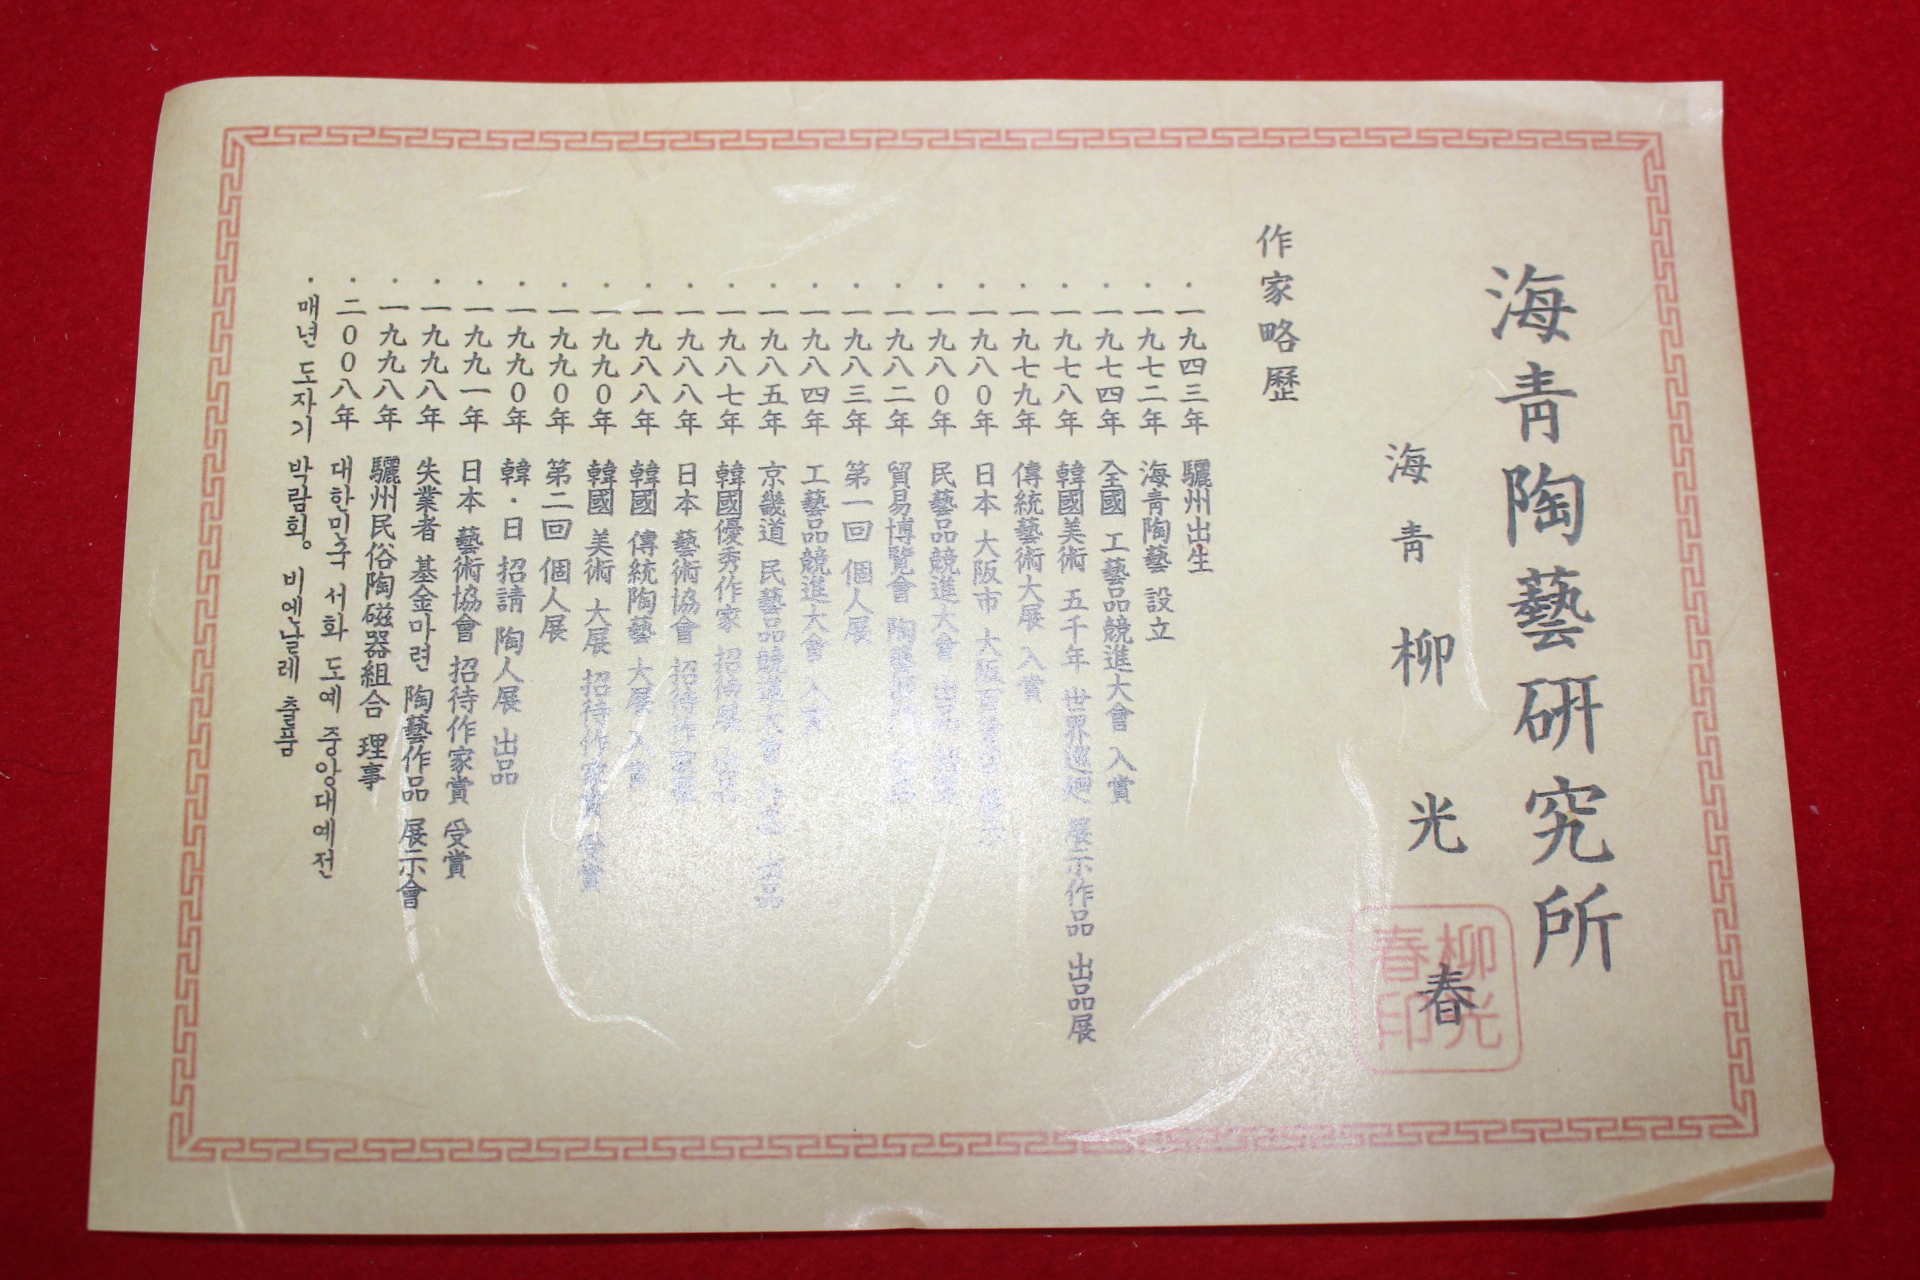 海靑陶藝硏究所
海靑 柳光春
柳光春印
作家略歷
· 一九四三年 驪州出生
· 一九七二年 海靑陶藝 設立
· 一九七四年 全國 工藝品競進大會 入賞
· 一九七八年 韓國美術 五千年 世界巡廻 展示作品 出品展
· 一九七九年 傳統藝術大展 入賞
· 一九八0年 日本 大阪市 大阪百貨店
· 一九八0年 民藝品競進大會 出品
· 一九八二年 貿易博覽會 陶藝
· 一九八三年 第一回 個人展
· 一九八四年 工藝品競進大會 入賞
· 一九八五年 京畿道 民藝品競進大會
· 一九八七年 韓國優秀作家 招待展
· 一九八八年 日本 藝術協會 招待作家
· 一九八八年 韓國 傳統陶藝 大展 入賞
· 一九九0年 韓國 美術 大展 招待作家賞 受賞
· 一九九0年 第二回 個人展
· 一九九0年 韓·日 招請 陶人展 出品
· 一九九一年 日本 藝術協會 招待作家賞 受賞
· 一九九八年 失業者 基金마련 陶藝作品 展示會
· 一九九八年 驪州民俗陶磁器組合 理事
· 二00八年 대한민국 서화 도예 중앙대예전
· 매년 도자기 박람회。 비엔날레 출품